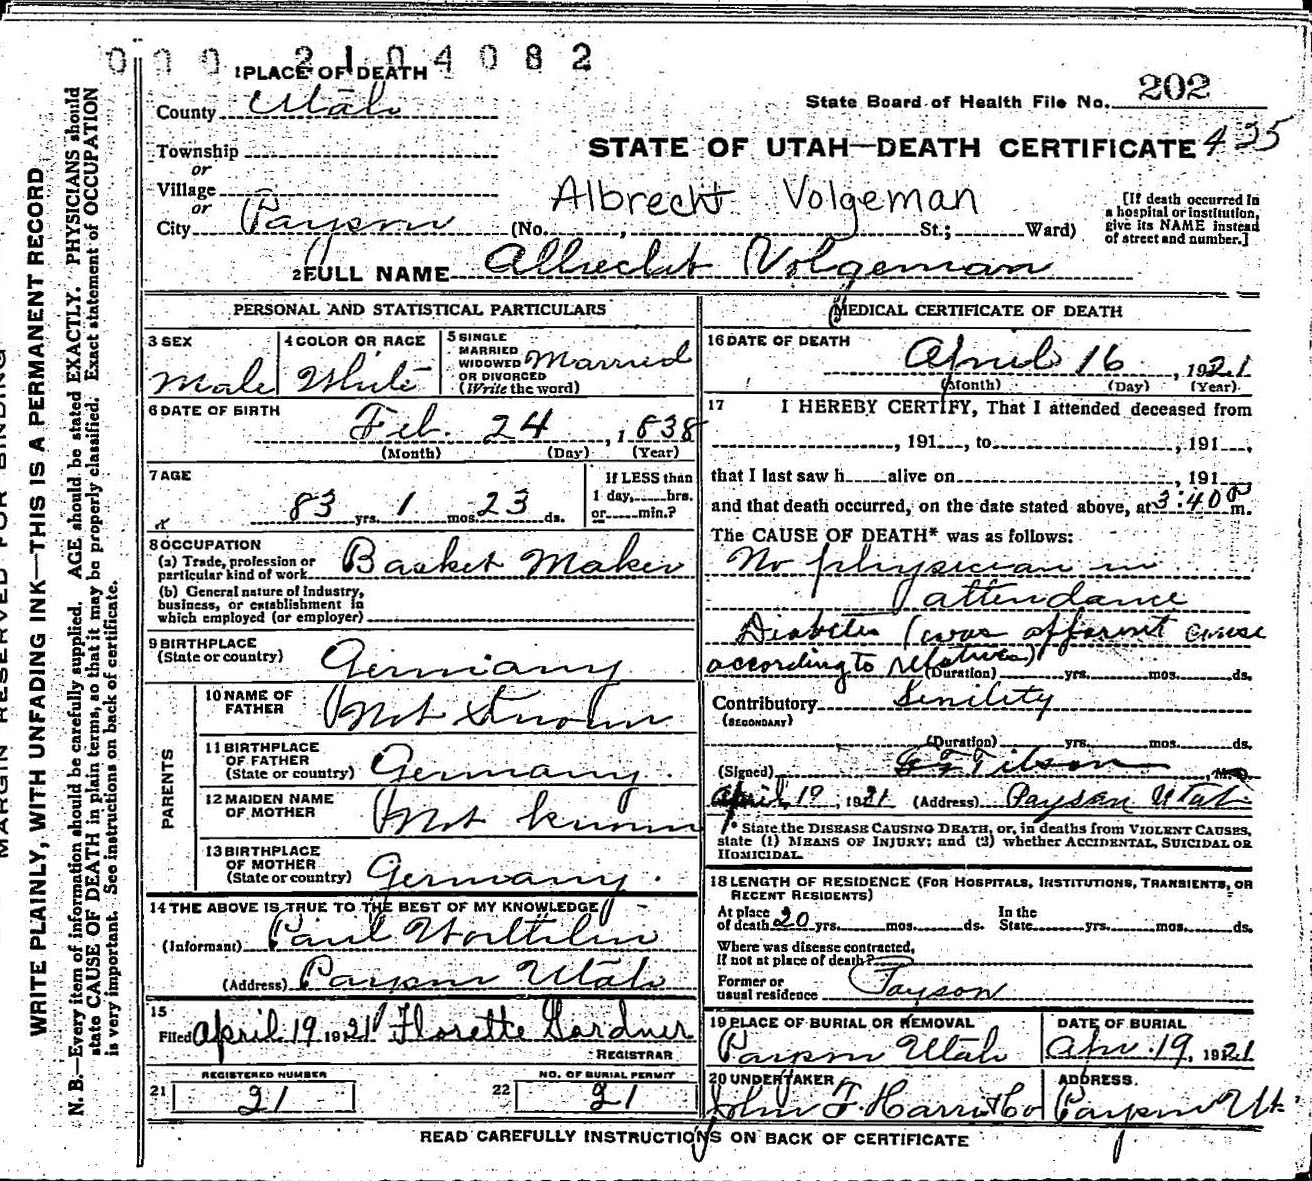 0 0 0 2 1 0 4 0 8 2
1 PLACE OF DEATH
County Utah
Township
or
Village
or
City Payson (No. , St.; Ward)
State Board of Health File No. 202
STATE OF UTAH—DEATH CERTIFICATE 435
Albrecht Volgeman
[If death occurred in
a hospital or institution,
give its NAME instead
of street and number.]
2 FULL NAME Albrecht Volgeman
PERSONAL AND STATISTICAL PARTICULARS
3 SEX
Male
4 COLOR OR RACE
White
5 SINGLE
MARRIED
WIDOWED
OR DIVORCED
(Write the word)
Married
6 DATE OF BIRTH
Feb. 24, 1838
(Month) (Day) (Year)
7 AGE
83 yrs. 1 mos. 23 ds.
If LESS than
1 day, hrs.
or min.?
8 OCCUPATION
(a) Trade, profession or
particular kind of work Basket Maker
(b) General nature of Industry,
business, or establishment in
which employed (or employer)
9 BIRTHPLACE
(State or country) Germany
PARENTS
10 NAME OF
FATHER Not Known
11 BIRTHPLACE
OF FATHER
(State or country) Germany.
12 MAIDEN NAME
OF MOTHER Not known
13 BIRTHPLACE
OF MOTHER
(State or country) Germany.
14 THE ABOVE IS TRUE TO THE BEST OF MY KNOWLEDGE
(Informant) Paul
(Address) Payson Utah
15
Filed April 19 1921 Florette Gardner
REGISTRAR
REGISTERED NUMBER
21 21
NO. OF BURIAL PERMIT
22 21
MEDICAL CERTIFICATE OF DEATH
16 DATE OF DEATH
April 16, 1921
(Month) (Day) (Year)
17 I HEREBY CERTIFY, That I attended deceased from
, 191 , to , 191 ,
that I last saw h alive on , 191
and that death occurred, on the date stated above, at 3:40 P m.
The CAUSE OF DEATH* was as follows:
No physician in
attendance
Diabetes (was apparent cause
according to relatives)
(Duration) yrs. mos. ds.
Contributory Senility
(SECONDARY)
(Duration) yrs. mos. ds.
(Signed) Tilson, M. D.
April 19, 1921 (Address) Payson Utah
* State the DISEASE CAUSING DEATH, or, in deaths from VIOLENT CAUSES,
state (1) MEANS OF INJURY; and (2) whether ACCIDENTAL, SUICIDAL OR
HOMICIDAL.
18 LENGTH OF RESIDENCE (FOR HOSPITALS, INSTITUTIONS, TRANSIENTS, OR
RECENT RESIDENTS)
At place
of death 20 yrs. mos. ds.
In the
State yrs. mos. ds.
Where was disease contracted,
If not at place of death?
Former or
usual residence Payson
19 PLACE OF BURIAL OR REMOVAL
Payson Utah
DATE OF BURIAL
Apr. 19, 1921
20 UNDERTAKER
John F. Co
ADDRESS.
Payson Ut.
READ CAREFULLY INSTRUCTIONS ON BACK OF CERTIFICATE
MARGIN RESERVED FOR BINDING
WRITE PLAINLY, WITH UNFADING INK—THIS IS A PERMANENT RECORD
N. B.—Every item of information should be carefully supplied. AGE should be stated EXACTLY. PHYSICIANS should
state CAUSE OF DEATH in plain terms, so that it may be properly classified. Exact statement of OCCUPATION
is very important. See instructions on back of certificate.